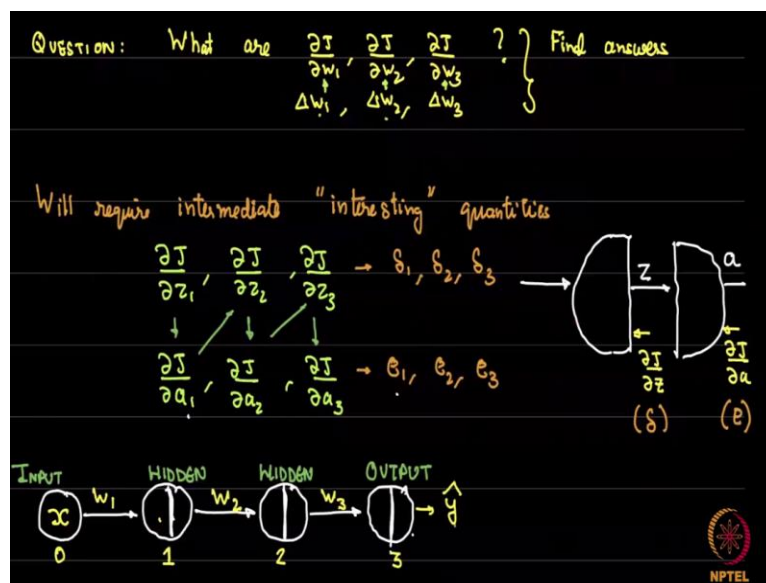 QUESTION: What are ∂J/∂w₁, ∂J/∂w₂, ∂J/∂w₃ ? } Find answers
Δw₁, Δw₂, Δw₃
Will require intermediate "interesting" quantities
∂J/∂z₁, ∂J/∂z₂, ∂J/∂z₃ → δ₁, δ₂, δ₃
z a
∂J/∂a₁, ∂J/∂a₂, ∂J/∂a₃ → e₁, e₂, e₃
∂J/∂z ∂J/∂a
(δ) (e)
INPUT HIDDEN HIDDEN OUTPUT
x w₁ w₂ w₃ → ŷ
0 1 2 3
NPTEL